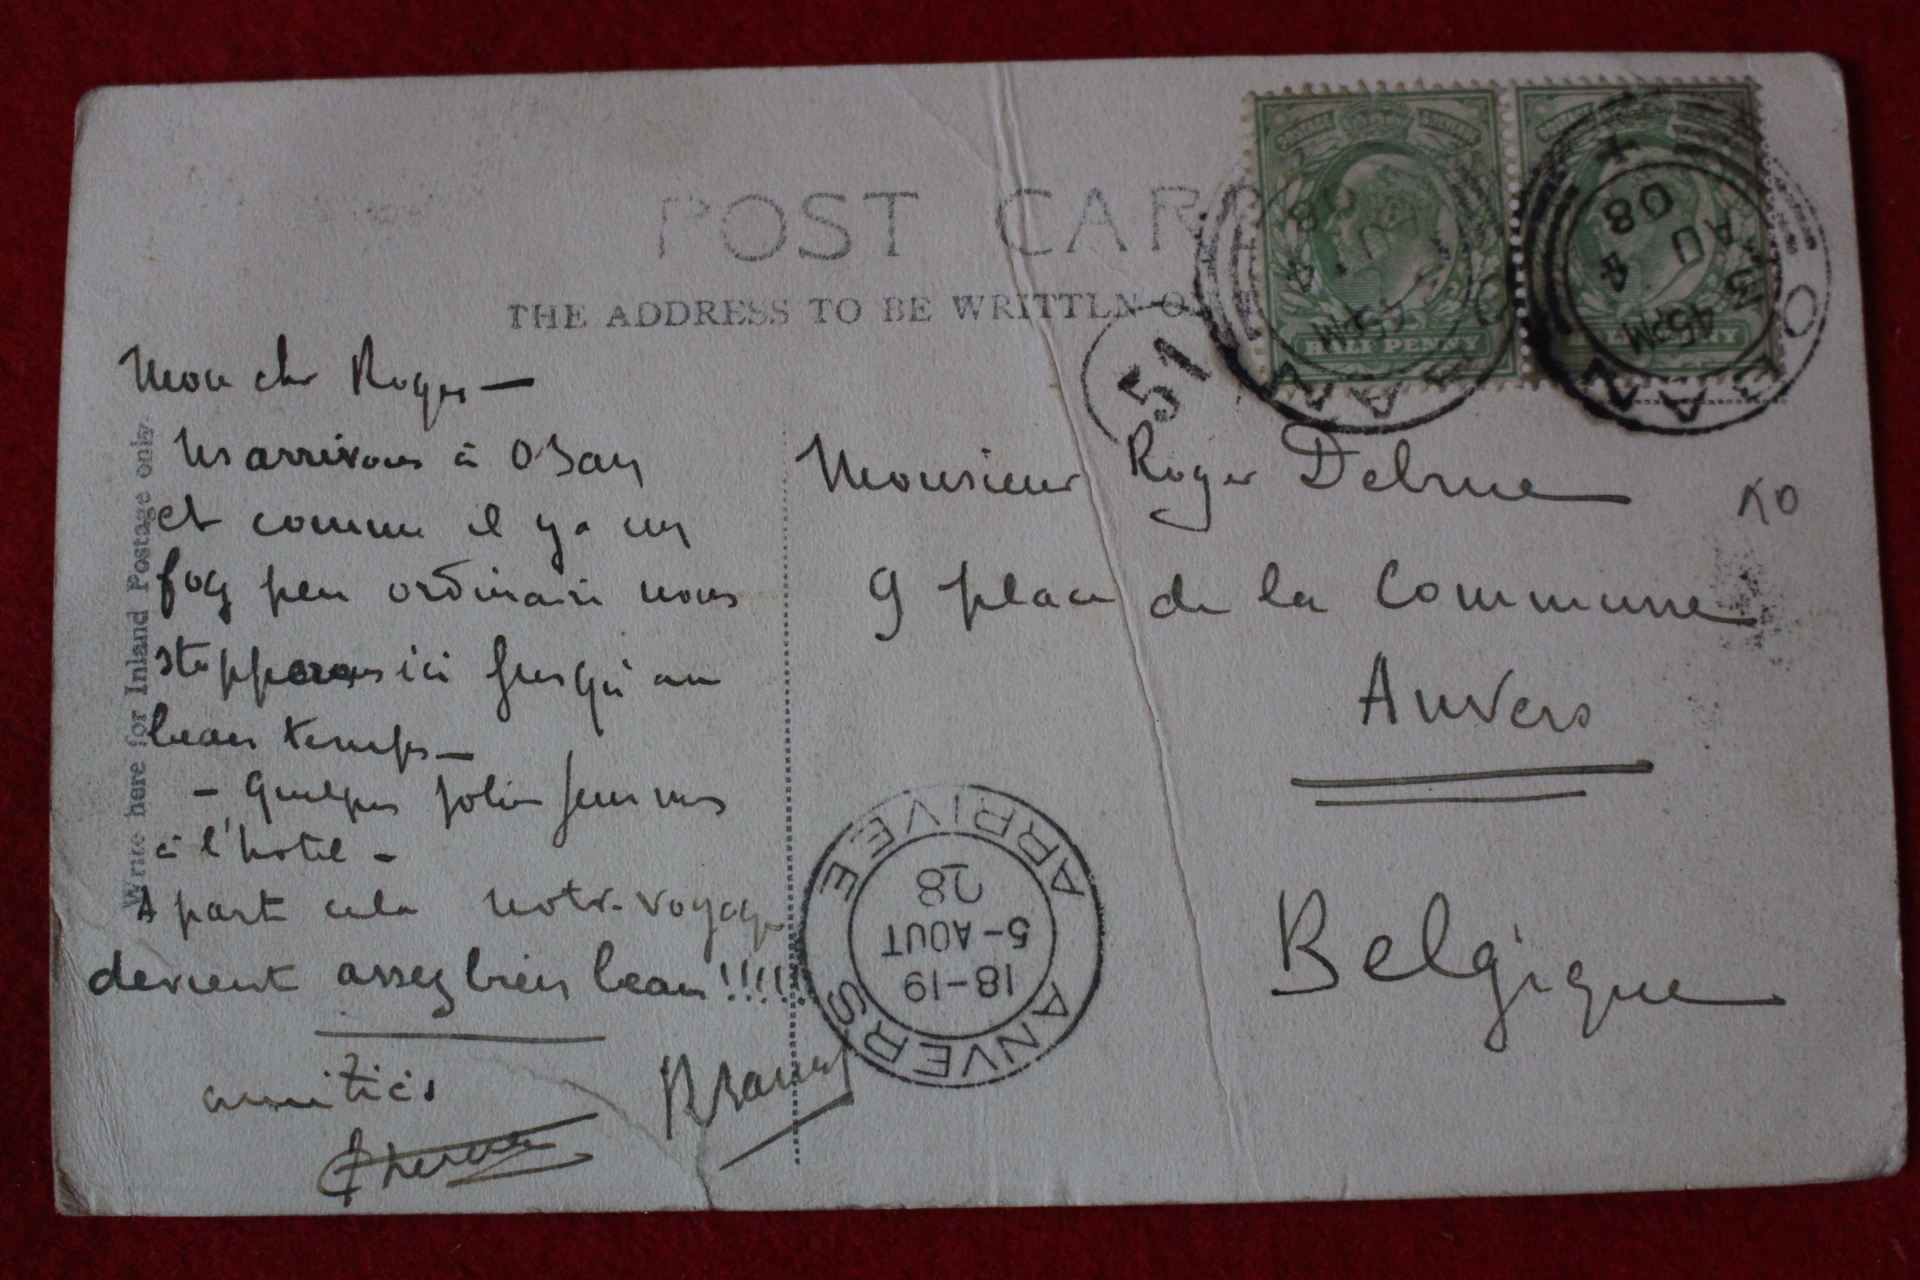 POST CAR
THE ADDRESS TO BE WRITTEN O
Write here for Inland Postage only
Mon cher Roger —
Ns arrivons à Oban
et comme il y a un
fog peu ordinaire nous
stopperons ici jusqu'au
beau temps —
— Quelques jolies femmes
à l'hotel —
A part cela notre voyage
devient assez bien beau!!!!!
amitiés
Monsieur Roger Delrue
9 place de la Commune
Anvers
Belgique
HALF PENNY
HALF PENNY
OBAN
3.45PM
AU 4
08
OBAN
45PM
AU 4
08
51
ANVERS ARRIVEE
18-19
5-AOUT
08